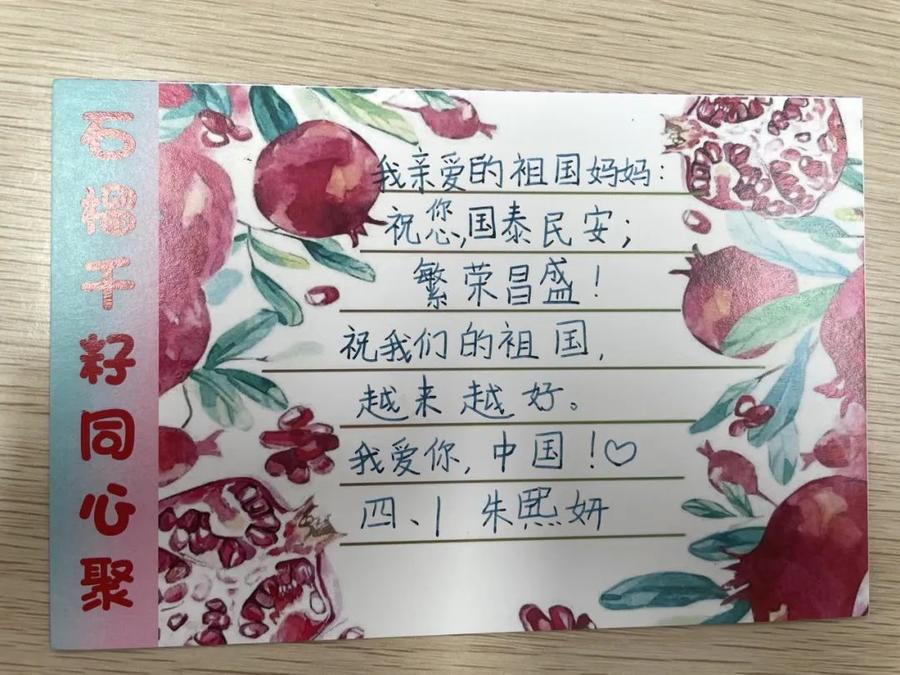 石榴千籽同心聚
我亲爱的祖国妈妈：
祝您,国泰民安；
繁荣昌盛！
祝我们的祖国,
越来越好。
我爱你,中国！♡
四、1 朱熙妍